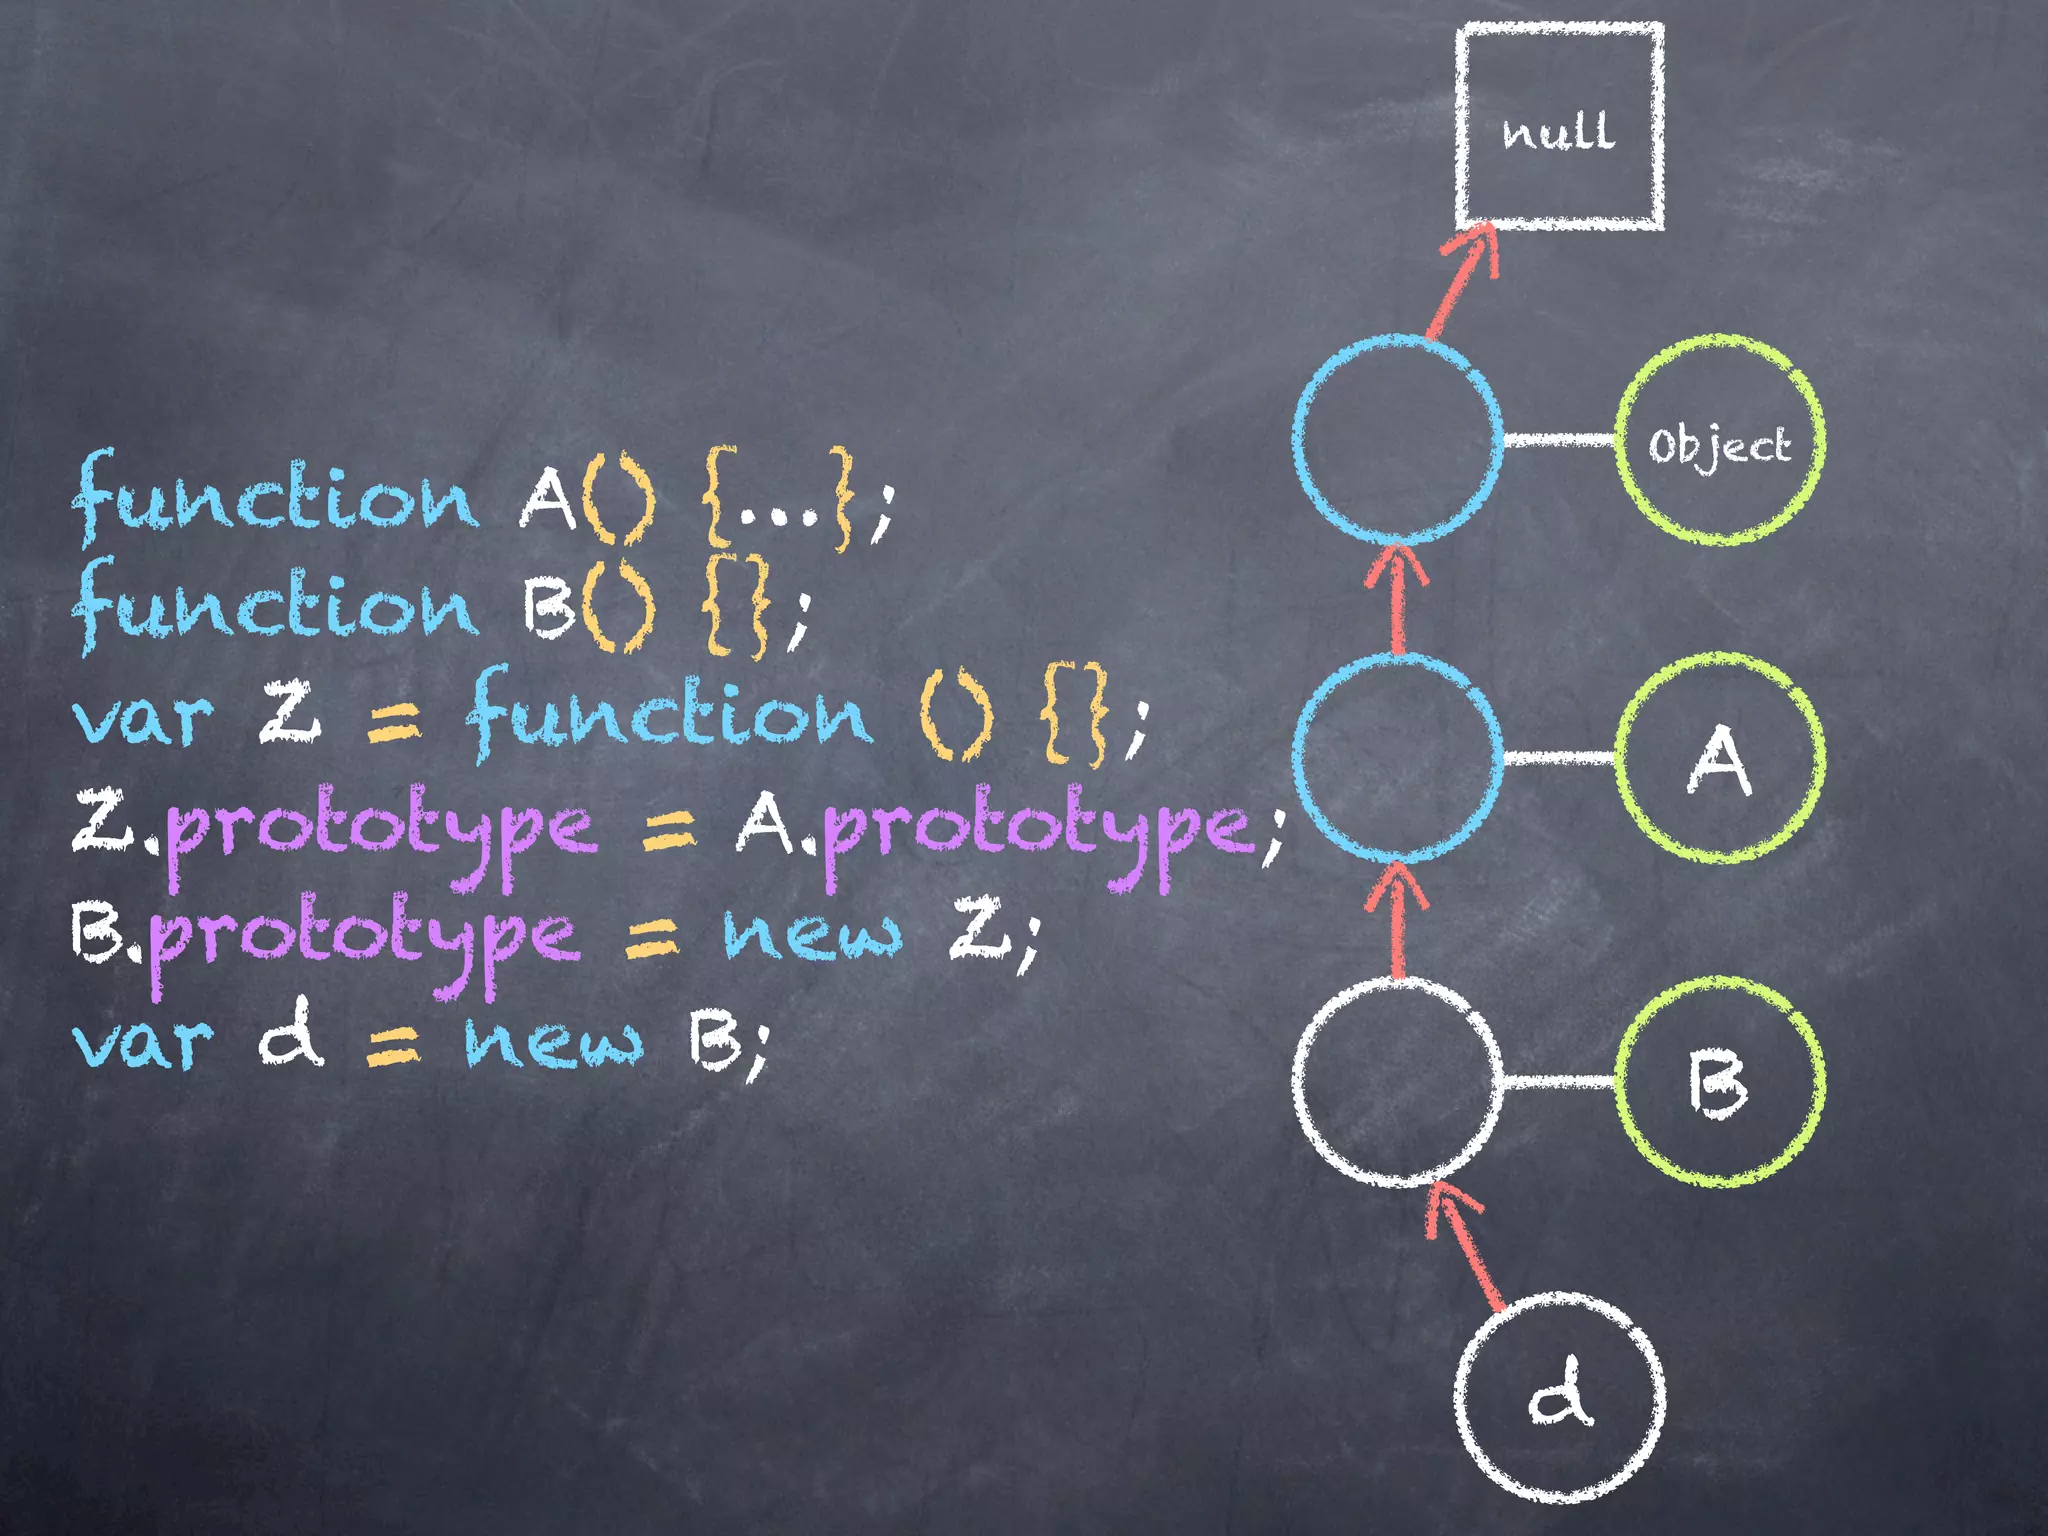 function A() {...};
function B() {};
var Z = function () {};
Z.prototype = A.prototype;
B.prototype = new Z;
var d = new B;
null
Object
A
B
d